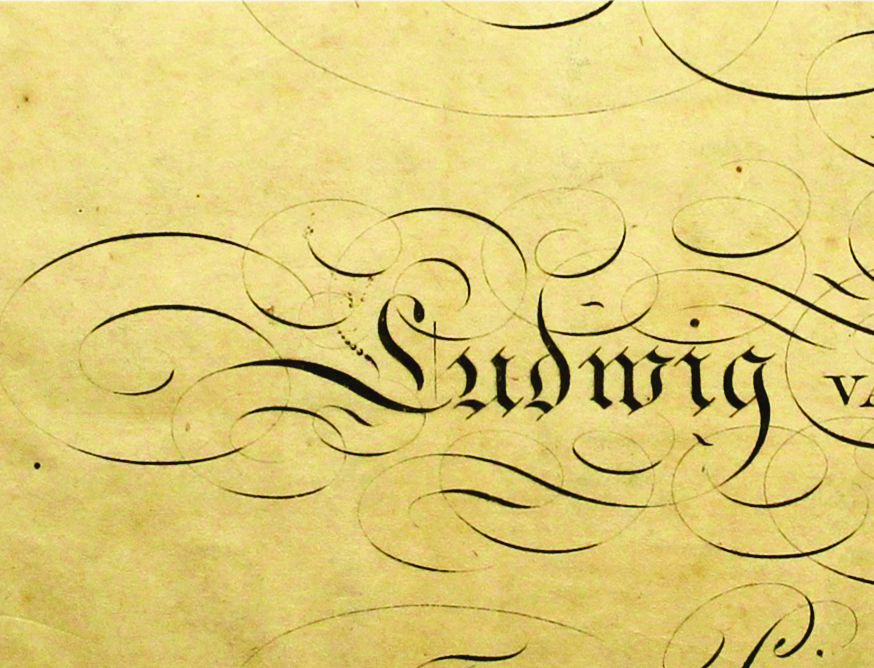 Ludwig VA